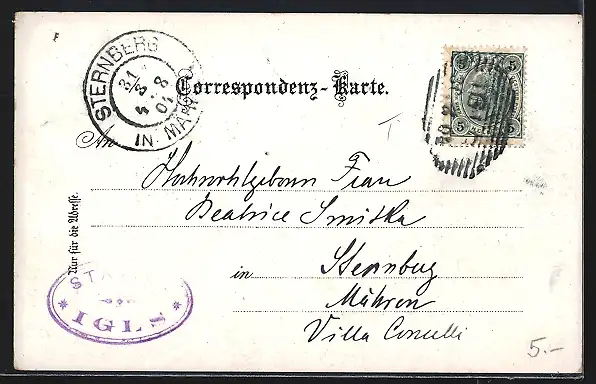 STERNBERG
IN MÄHR
31
3 8
4 01
Correspondenz-Karte.
5 5
5 5
IGLS
An
Hochwohlgeboren Frau
Beatrice Smitka
Nur für die Adresse.
in Sternberg
Mähren
Villa
IGLS
5.-